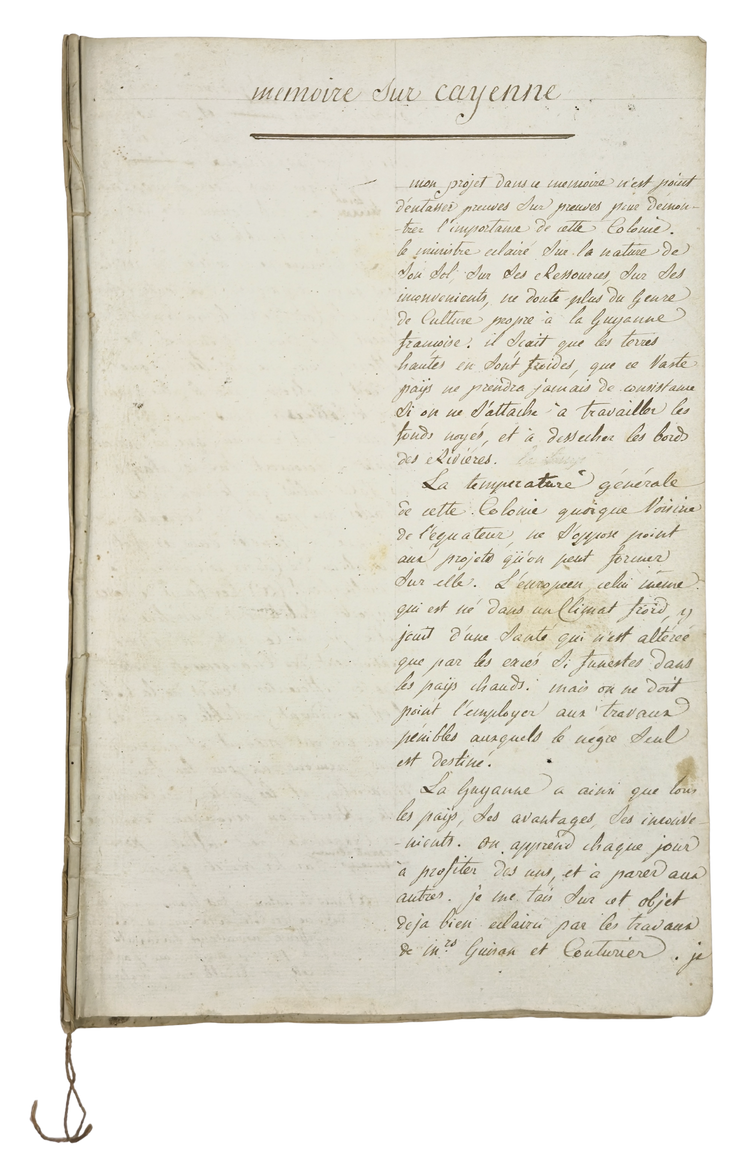 memoire sur cayenne
mon projet dans ce memoire n'est point
d'entasser preuves sur preuves pour démon-
-trer l'importance de cette Colonie.
le ministre eclairé sur la nature de
son sol, sur ses Ressources, sur ses
inconvenients, ne doute plus du Genre
de Culture propre à la Guyanne
francoise. il scait que les terres
hautes en sont froides, que ce vaste
païs ne prendra jamais de consistance
si on ne s'attache à travailler les
fonds noyés, et à dessecher les bords
des Rivières.
La temperature générale
de cette Colonie quoique voisine
de l'equateur, ne s'oppose point
aux projets qu'on peut former
sur elle. L'européen, celui même
qui est né dans un Climat froid, y
jouit d'une santé qui n'est altérée
que par les excés si funestes dans
les païs chauds. mais on ne doit
point l'employer aux travaux
pénibles auxquels le négre seul
est destiné.
La Guyanne a ainsi que tous
les païs, ses avantages, ses inconve-
-nients. on apprend chaque jour
à profiter des uns, et à parer aux
autres. je me tais sur cet objet
deja bien eclairci par les travaux
de mrs Guisan et Couturier. je